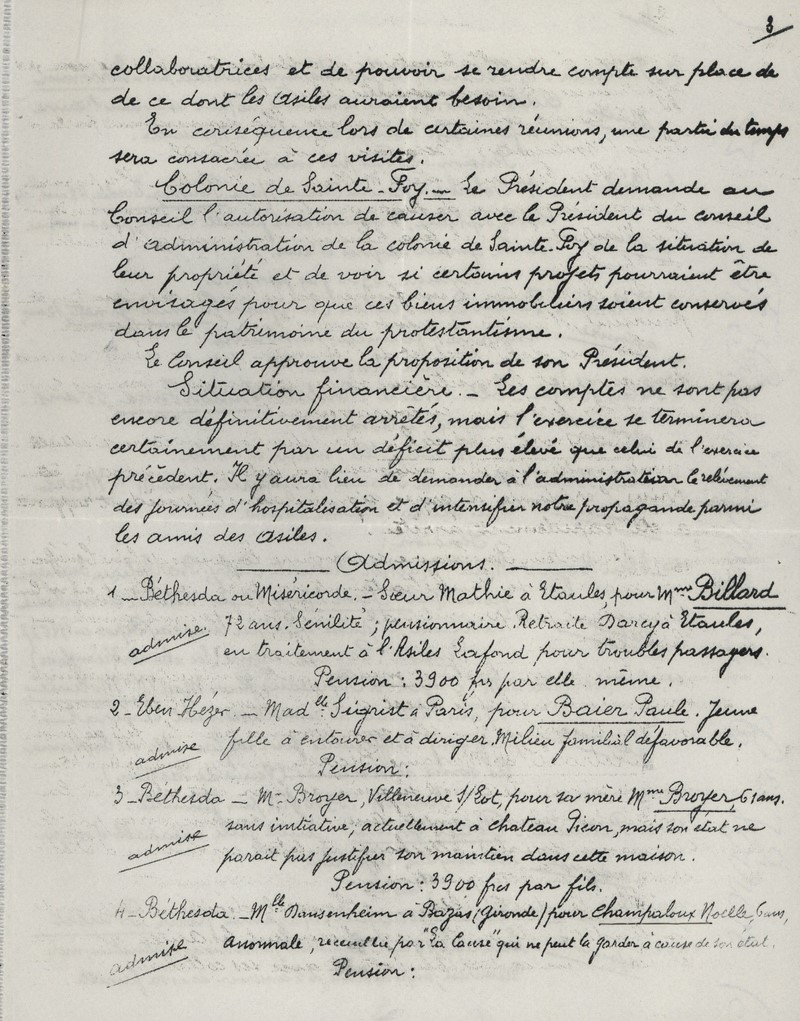 3
collaboratrices et de pouvoir se rendre compte sur place de
de ce dont les Asiles auraient besoin.
En conséquence lors de certaines réunions, une partie du temps
sera consacrée à ces visites.
Colonie de Sainte-Foy. — Le Président demande au
Conseil l'autorisation de causer avec le Président du conseil
d'administration de la colonie de Sainte-Foy de la situation de
leur propriété et de voir si certains projets pourraient être
envisagés pour que ces biens immobiliers soient conservés
dans le patrimoine du protestantisme.
Le Conseil approuve la proposition de son Président.
Situation financière. — Les comptes ne sont pas
encore définitivement arrêtés, mais l'exercice se terminera
certainement par un déficit plus élevé que celui de l'exercice
précédent. Il y aura lieu de demander à l'administration le relèvement
des journées d'hospitalisation et d'intensifier notre propagande parmi
les amis des Asiles.
Admissions.
1 — Béthesda ou Miséricorde. — Sœur Mathie à Etaules, pour Mme Billard
72 ans. Sénilité ; pensionnaire Retraite Darcy à Etaules,
admise.
en traitement à l'Asiles Lafond pour troubles passagers.
Pension : 3900 frs par elle même.
2 — Eben Hézer. — Madelle Sigrist à Paris, pour Baier Paule. Jeune
fille à entourer et à diriger. Milieu familial défavorable.
admise
Pension :
3 — Béthesda — Mr Broyer, Villeneuve S/Lot, pour sa mère Mme Broyer, 61 ans.
sans initiative ; actuellement à Chateau Picon, mais son état ne
admise
parait pas justifier son maintien dans cette maison.
Pension : 3900 frcs par fils.
4 — Béthesda. — Melle à Bazas (Gironde) pour Champaloux Noelle, 6 ans,
Anormale ; recueillie par "La Cause" qui ne peut la garder à cause de son état.
admise
Pension :